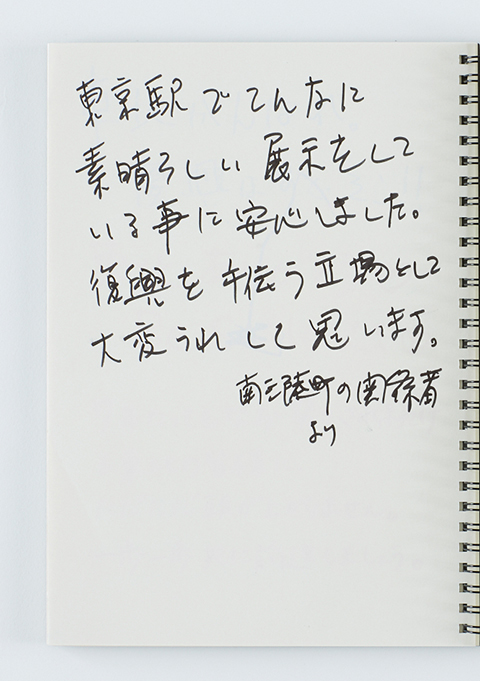 東京駅でこんなに
素晴らしい展示をして
いる事に安心しました。
復興を手伝う立場として
大変うれしく思います。
南三陸町の関係者
より